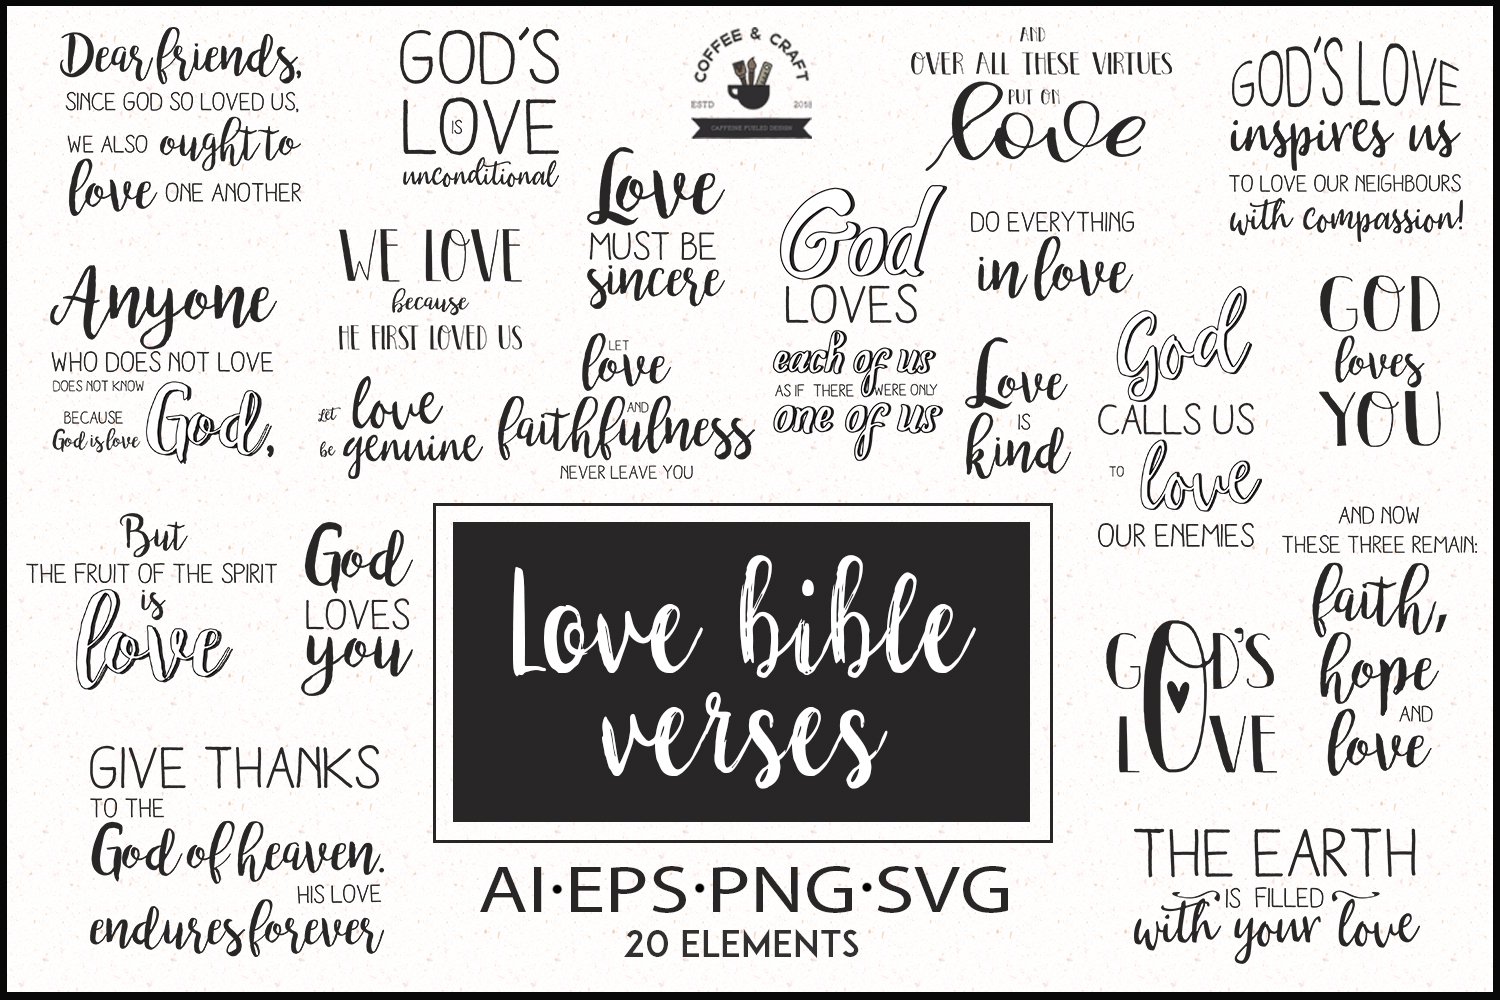 Dear friends,
SINCE GOD SO LOVED US,
WE ALSO ought to
love ONE ANOTHER
GOD'S
LOVE
IS
unconditional
COFFEE & CRAFT
ESTD 2018
CAFFEINE FUELED DESIGN
AND
OVER ALL THESE VIRTUES
PUT ON
love
GOD'S LOVE
inspires us
TO LOVE OUR NEIGHBOURS
with compassion!
Anyone
WHO DOES NOT LOVE
DOES NOT KNOW
God,
BECAUSE
God is love
WE LOVE
because
HE FIRST LOVED US
Love
MUST BE
sincere
God
LOVES
each of us
AS IF THERE WERE ONLY
one of us
DO EVERYTHING
in love
GOD
loves
YOU
Let love
be genuine
LET
love
AND
faithfulness
NEVER LEAVE YOU
Love
IS
kind
God
CALLS US
TO love
OUR ENEMIES
But
THE FRUIT OF THE SPIRIT
is
love
God
LOVES
you
Love bible
verses
GOD'S
LOVE
AND NOW
THESE THREE REMAIN:
faith,
hope
AND
love
GIVE THANKS
TO THE
God of heaven.
HIS LOVE
endures forever
AI•EPS•PNG•SVG
20 ELEMENTS
THE EARTH
IS FILLED
with your love